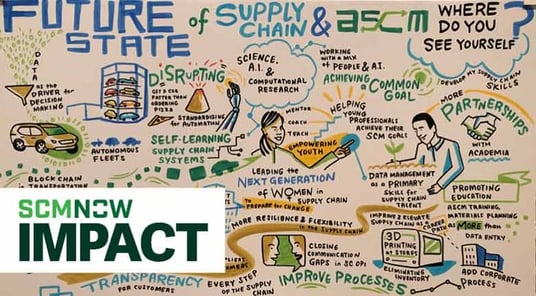 FUTURE
STATE
of SUPPLY
CHAIN & ascm
WHERE
DO YOU
SEE YOURSELF?
DATA
as the
DRIVER for
DECISION
MAKING
DISRUPTING
GET A CAR
FASTER THAN
ORDERING
PIZZA
STANDARDIZING
for AUTOMATION
SCIENCE,
A.I. &
COMPUTATIONAL
RESEARCH
WORKING
WITH A MIX
of PEOPLE & A.I.
ACHIEVING
COMMON
GOAL
I DEVELOP MY SUPPLY CHAIN
SKILLS
MORE
PARTNERSHIPS
WITH
ACADEMIA
AUTONOMOUS
FLEETS
SELF-LEARNING
SUPPLY CHAIN
SYSTEMS
MENTOR
COACH
TEACH
EMPOWERING
YOUTH
HELPING
YOUNG
PROFESSIONALS
ACHIEVE THEIR
SCM GOALS
BLOCKCHAIN
in TRANSPORTATION
LEADING the
NEXT GENERATION
of WOMEN in
SUPPLY CHAIN
to
PREPARE for CHANGE
DATA MANAGEMENT
as a PRIMARY
SKILL for
SUPPLY CHAIN
TALENT
PROMOTING
EDUCATION
ASCM TRAINING,
MATERIALS PLANNING
MORE than
DATA ENTRY
SCMNOW
IMPACT
MORE RESILIENCE & FLEXIBILITY
in the SUPPLY CHAIN
ELEVATE
SUPPLY CHAIN
PATH
CLOSING
COMMUNICATION
GAPS in SC OPS
3D
PRINTING
at STORES
ELIMINATING
INVENTORY
ADD CORPORATE
PROCESS
TRANSPARENCY
FOR CUSTOMERS
EVERY STEP
OF THE SUPPLY
CHAIN
IMPROVE PROCESSES